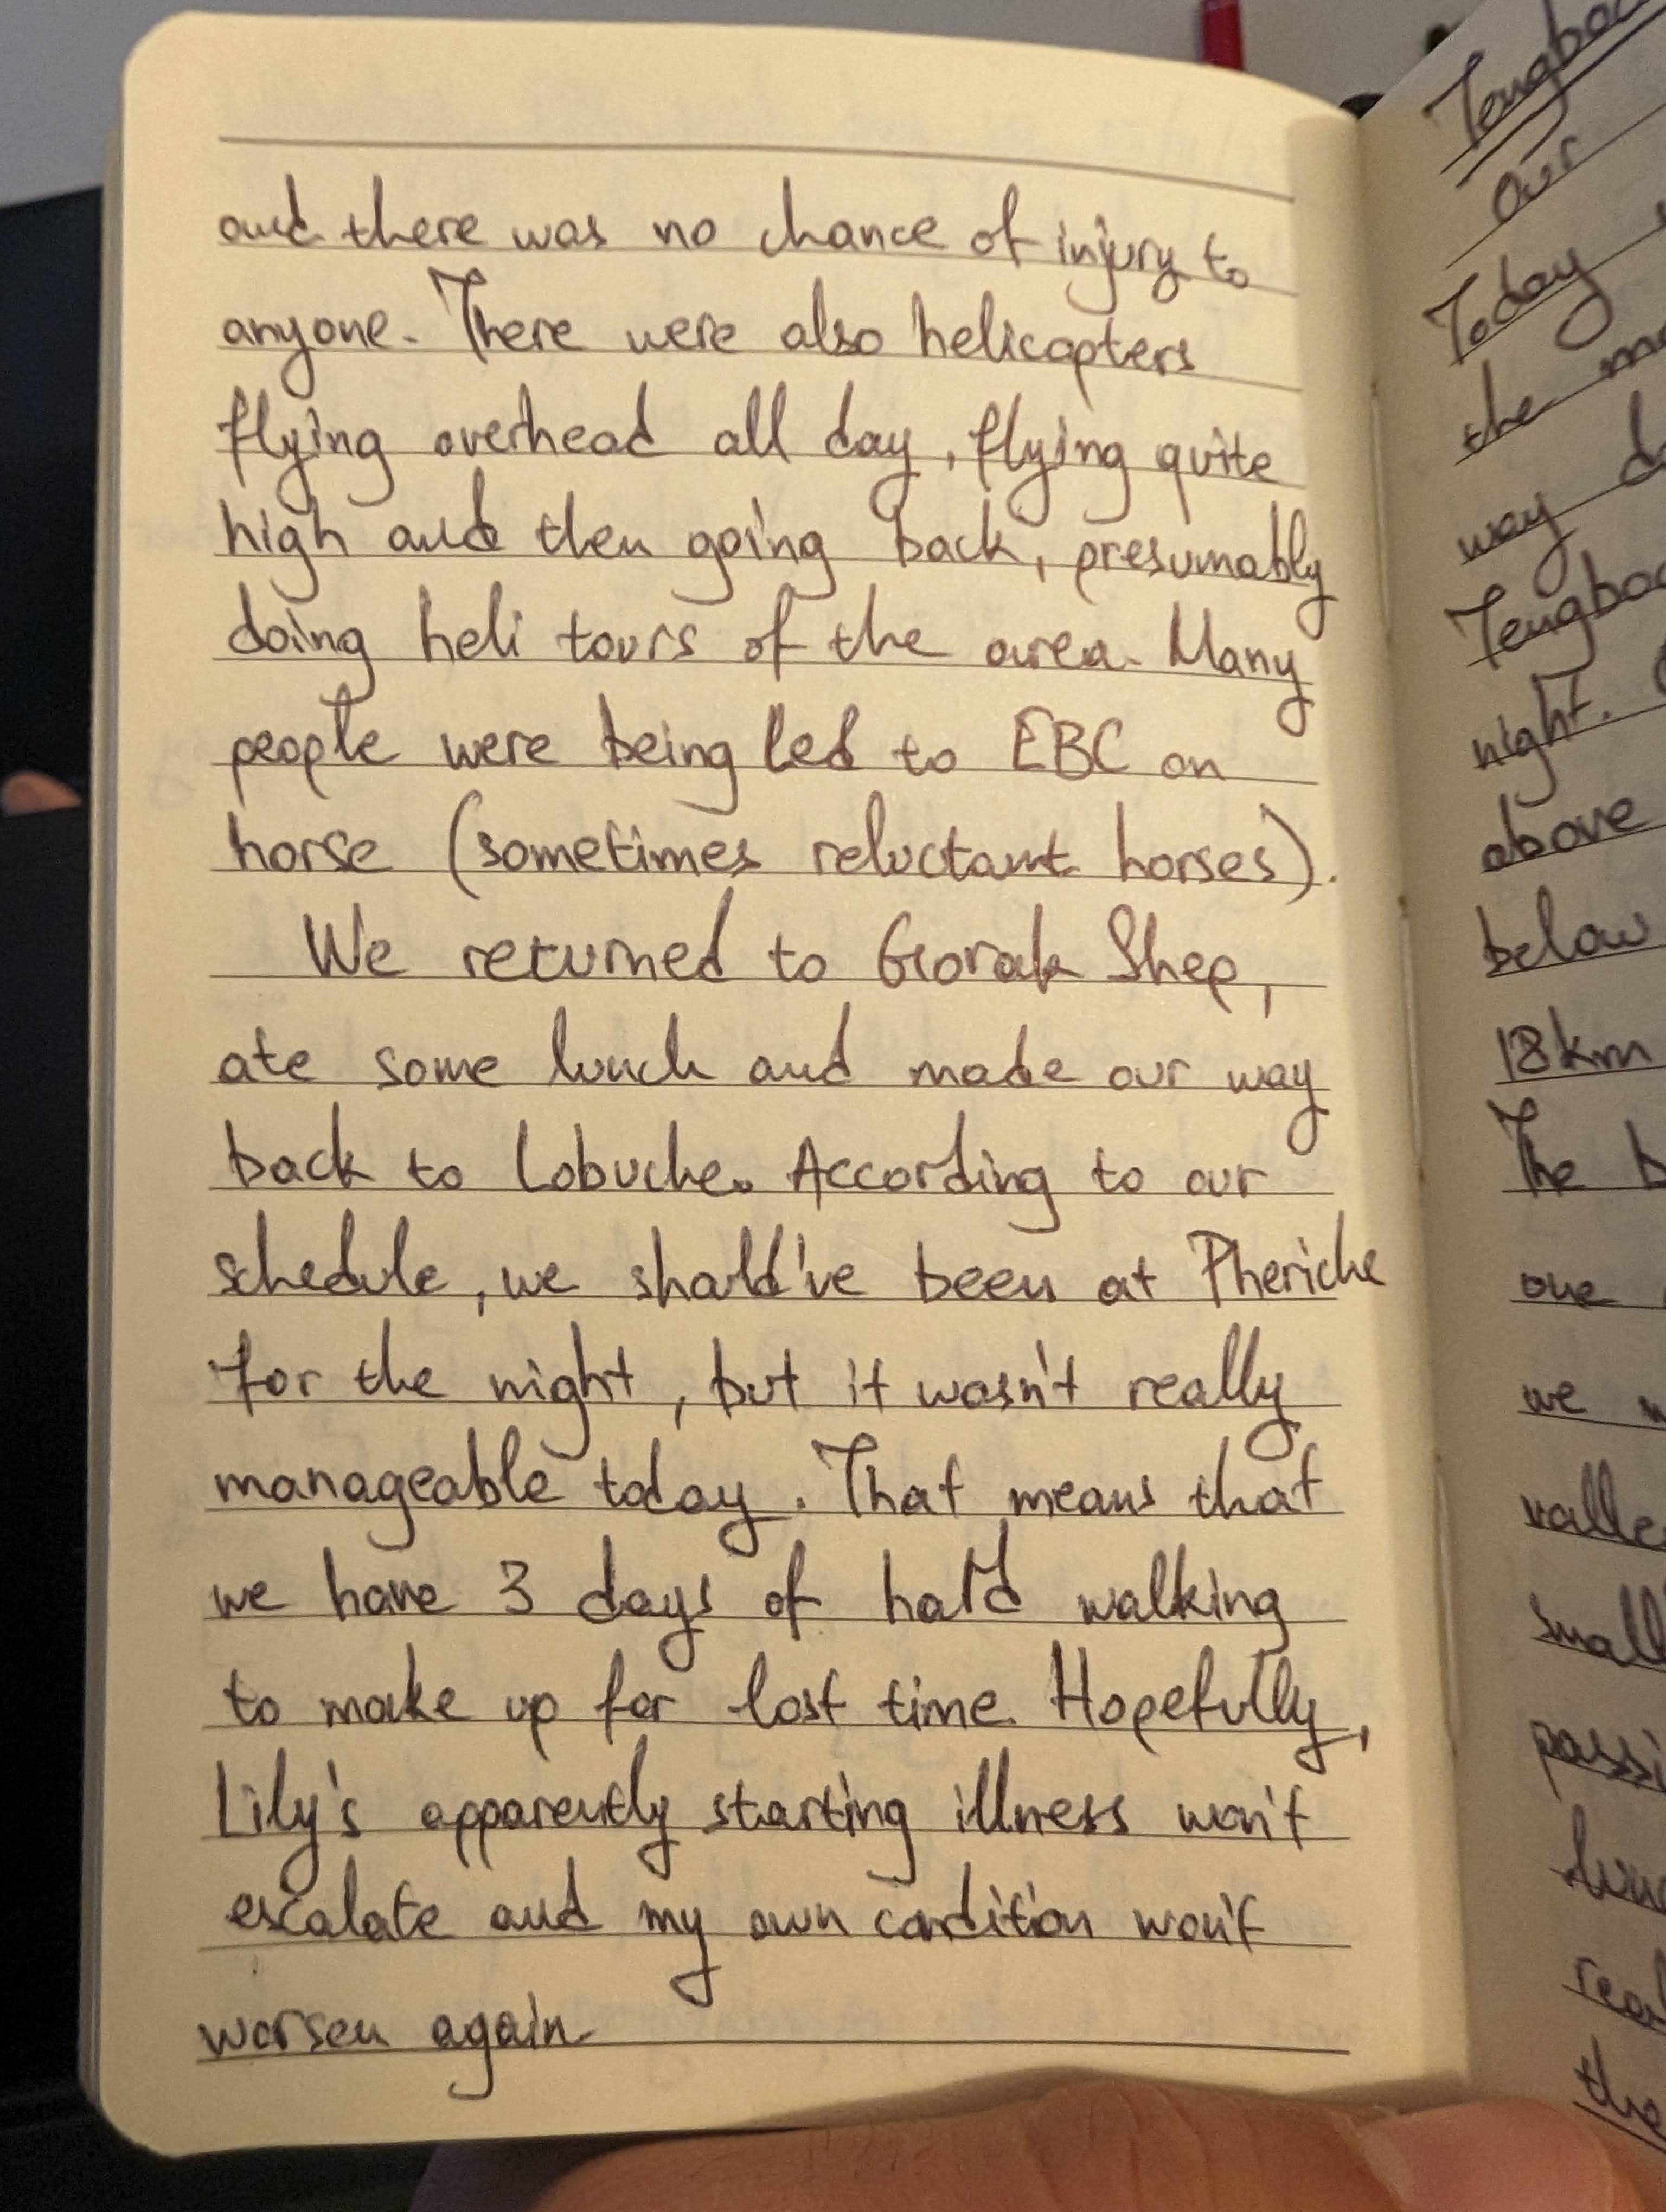 and there was no chance of injury to
anyone. There were also helicopters
flying overhead all day, flying quite
high and then going back, presumably
doing heli tours of the area. Many
people were being led to EBC on
horse (sometimes reluctant horses).
We returned to Gorak Shep,
ate some lunch and made our way
back to Lobuche. According to our
schedule, we should've been at Pheriche
for the night, but it wasn't really
manageable today. That means that
we have 3 days of hard walking
to make up for lost time. Hopefully,
Lily's apparently starting illness won't
escalate and my own condition won't
worsen again.
Our
Today
the
way
night.
above
below
18km
The
one
we